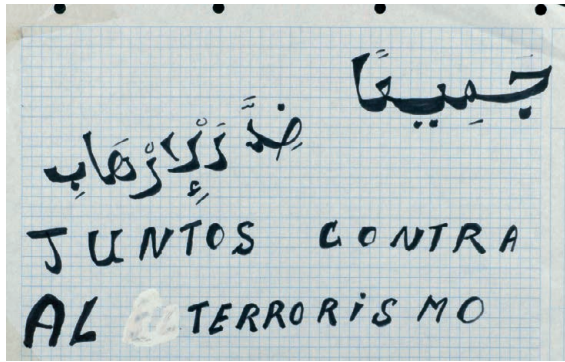 جَمِيعًا
ضِدَّ الْإِرْهَابِ
JUNTOS CONTRA
AL TERRORISMO